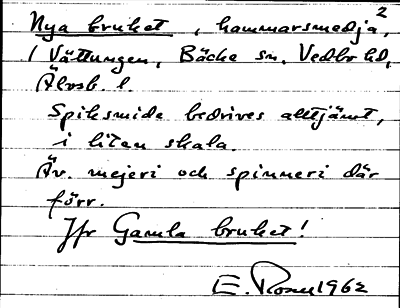 Nya bruket, hammarsmedja 2,
/ Vättungen, Bäcke sn. Vedbo hd,
Älvsb. l.
Spiksmide bedrives alltjämt,
i liten skala.
Äv. mejeri och spinneri där
förr.
Jfr Gamla bruket!
E. Rosen 1962